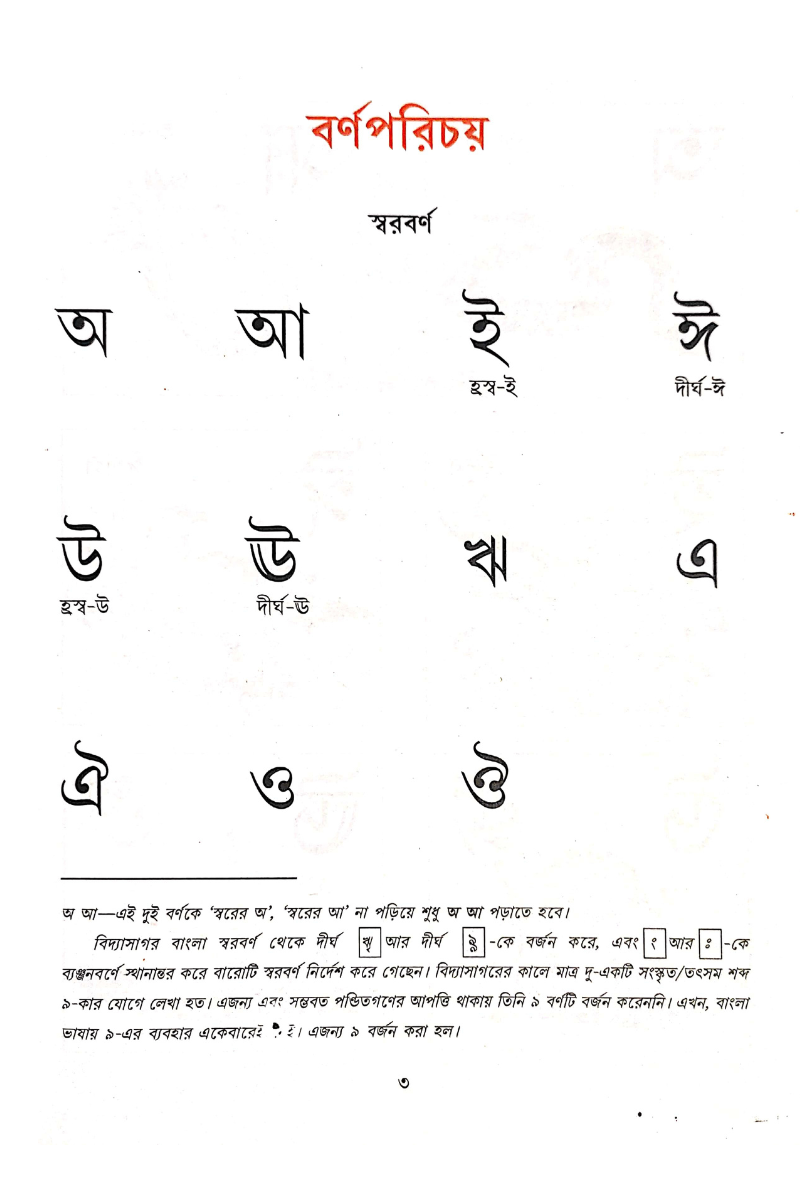 বর্ণপরিচয়
স্বরবর্ণ
অ আ ই ঈ
হ্রস্ব-ই দীর্ঘ-ঈ
উ ঊ ঋ এ
হ্রস্ব-উ দীর্ঘ-ঊ
ঐ ও ঔ
অ আ—এই দুই বর্ণকে ‘স্বরের অ’, ‘স্বরের আ’ না পড়িয়ে শুধু অ আ পড়াতে হবে।
বিদ্যাসাগর বাংলা স্বরবর্ণ থেকে দীর্ঘ ৠ আর দীর্ঘ ৡ -কে বর্জন করে, এবং ং আর ঃ -কে
ব্যঞ্জনবর্ণে স্থানান্তর করে বারোটি স্বরবর্ণ নির্দেশ করে গেছেন। বিদ্যাসাগরের কালে মাত্র দু-একটি সংস্কৃত/তৎসম শব্দ
ঌ-কার যোগে লেখা হত। এজন্য এবং সম্ভবত পণ্ডিতগণের আপত্তি থাকায় তিনি ঌ বর্ণটি বর্জন করেননি। এখন, বাংলা
ভাষায় ঌ-এর ব্যবহার একেবারেই ই। এজন্য ঌ বর্জন করা হল।
৩